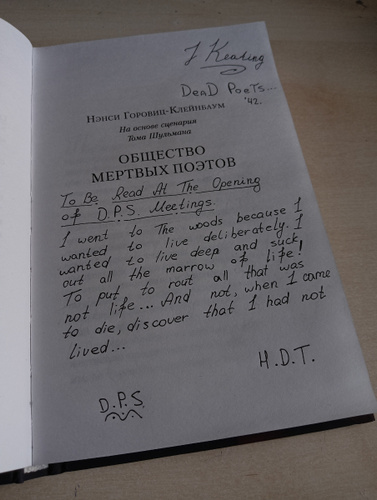 J Keating
DeaD Poets...
'42.
Нэнси Горовиц-Клейнбаум
На основе сценария
Тома Шульмана
ОБЩЕСТВО
МЕРТВЫХ ПОЭТОВ
To Be Read At The Opening
of D.P.S. Meetings.
I went to The woods because I
wanted to live deliberately. I
wanted to live deep and suck
out all the marrow of life!
To put to rout all that was
not life... And not, when I came
to die, discover that I had not
lived...
H.D.T.
D.P.S.